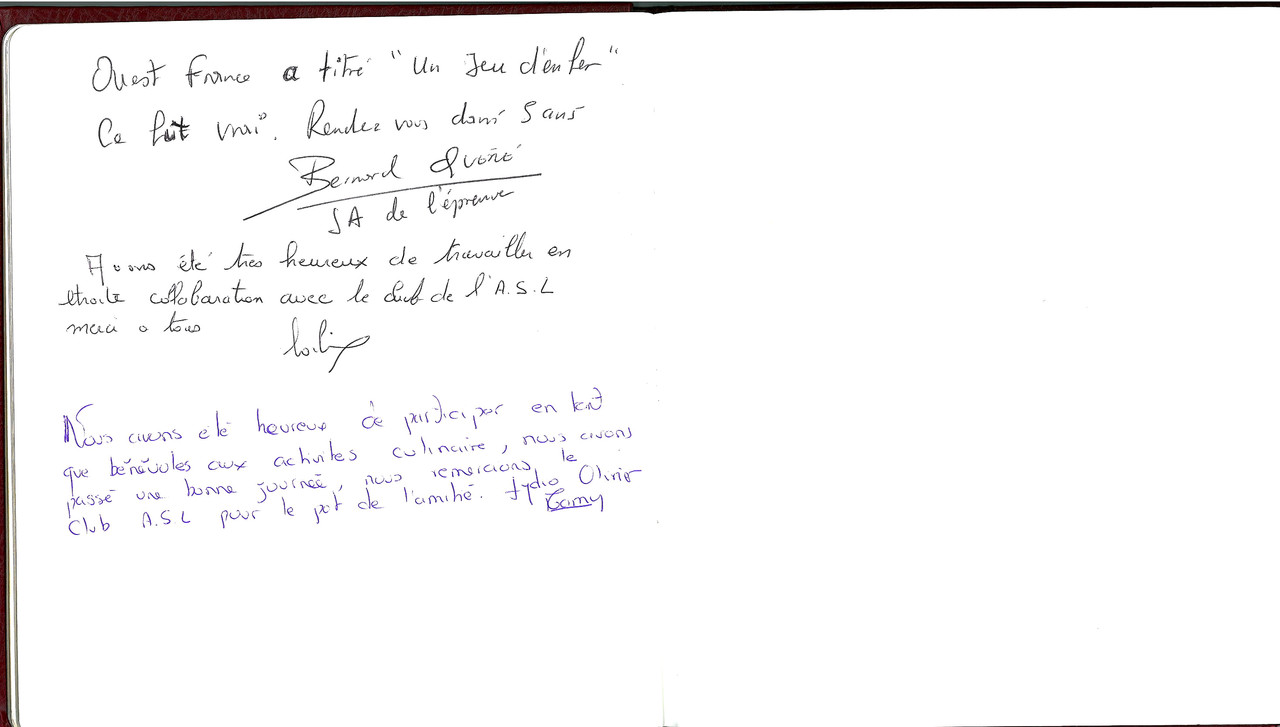 Ouest France a titré "Un Jeu d'enfer"
Ce fut vrai. Rendez vous dans 5 ans
Bernard Quéré
SA de l'épreuve
Avons été très heureux de travailler en
etroite collabaration avec le club de l'A.S.L
merci a tous
Nous avons eté heureux de participer en tant
que bénévoles aux activites culinaire, nous avons
passé une bonne journée, nous remercions le
Club A.S.L pour le pot de l'amitié. Lydia Olivier